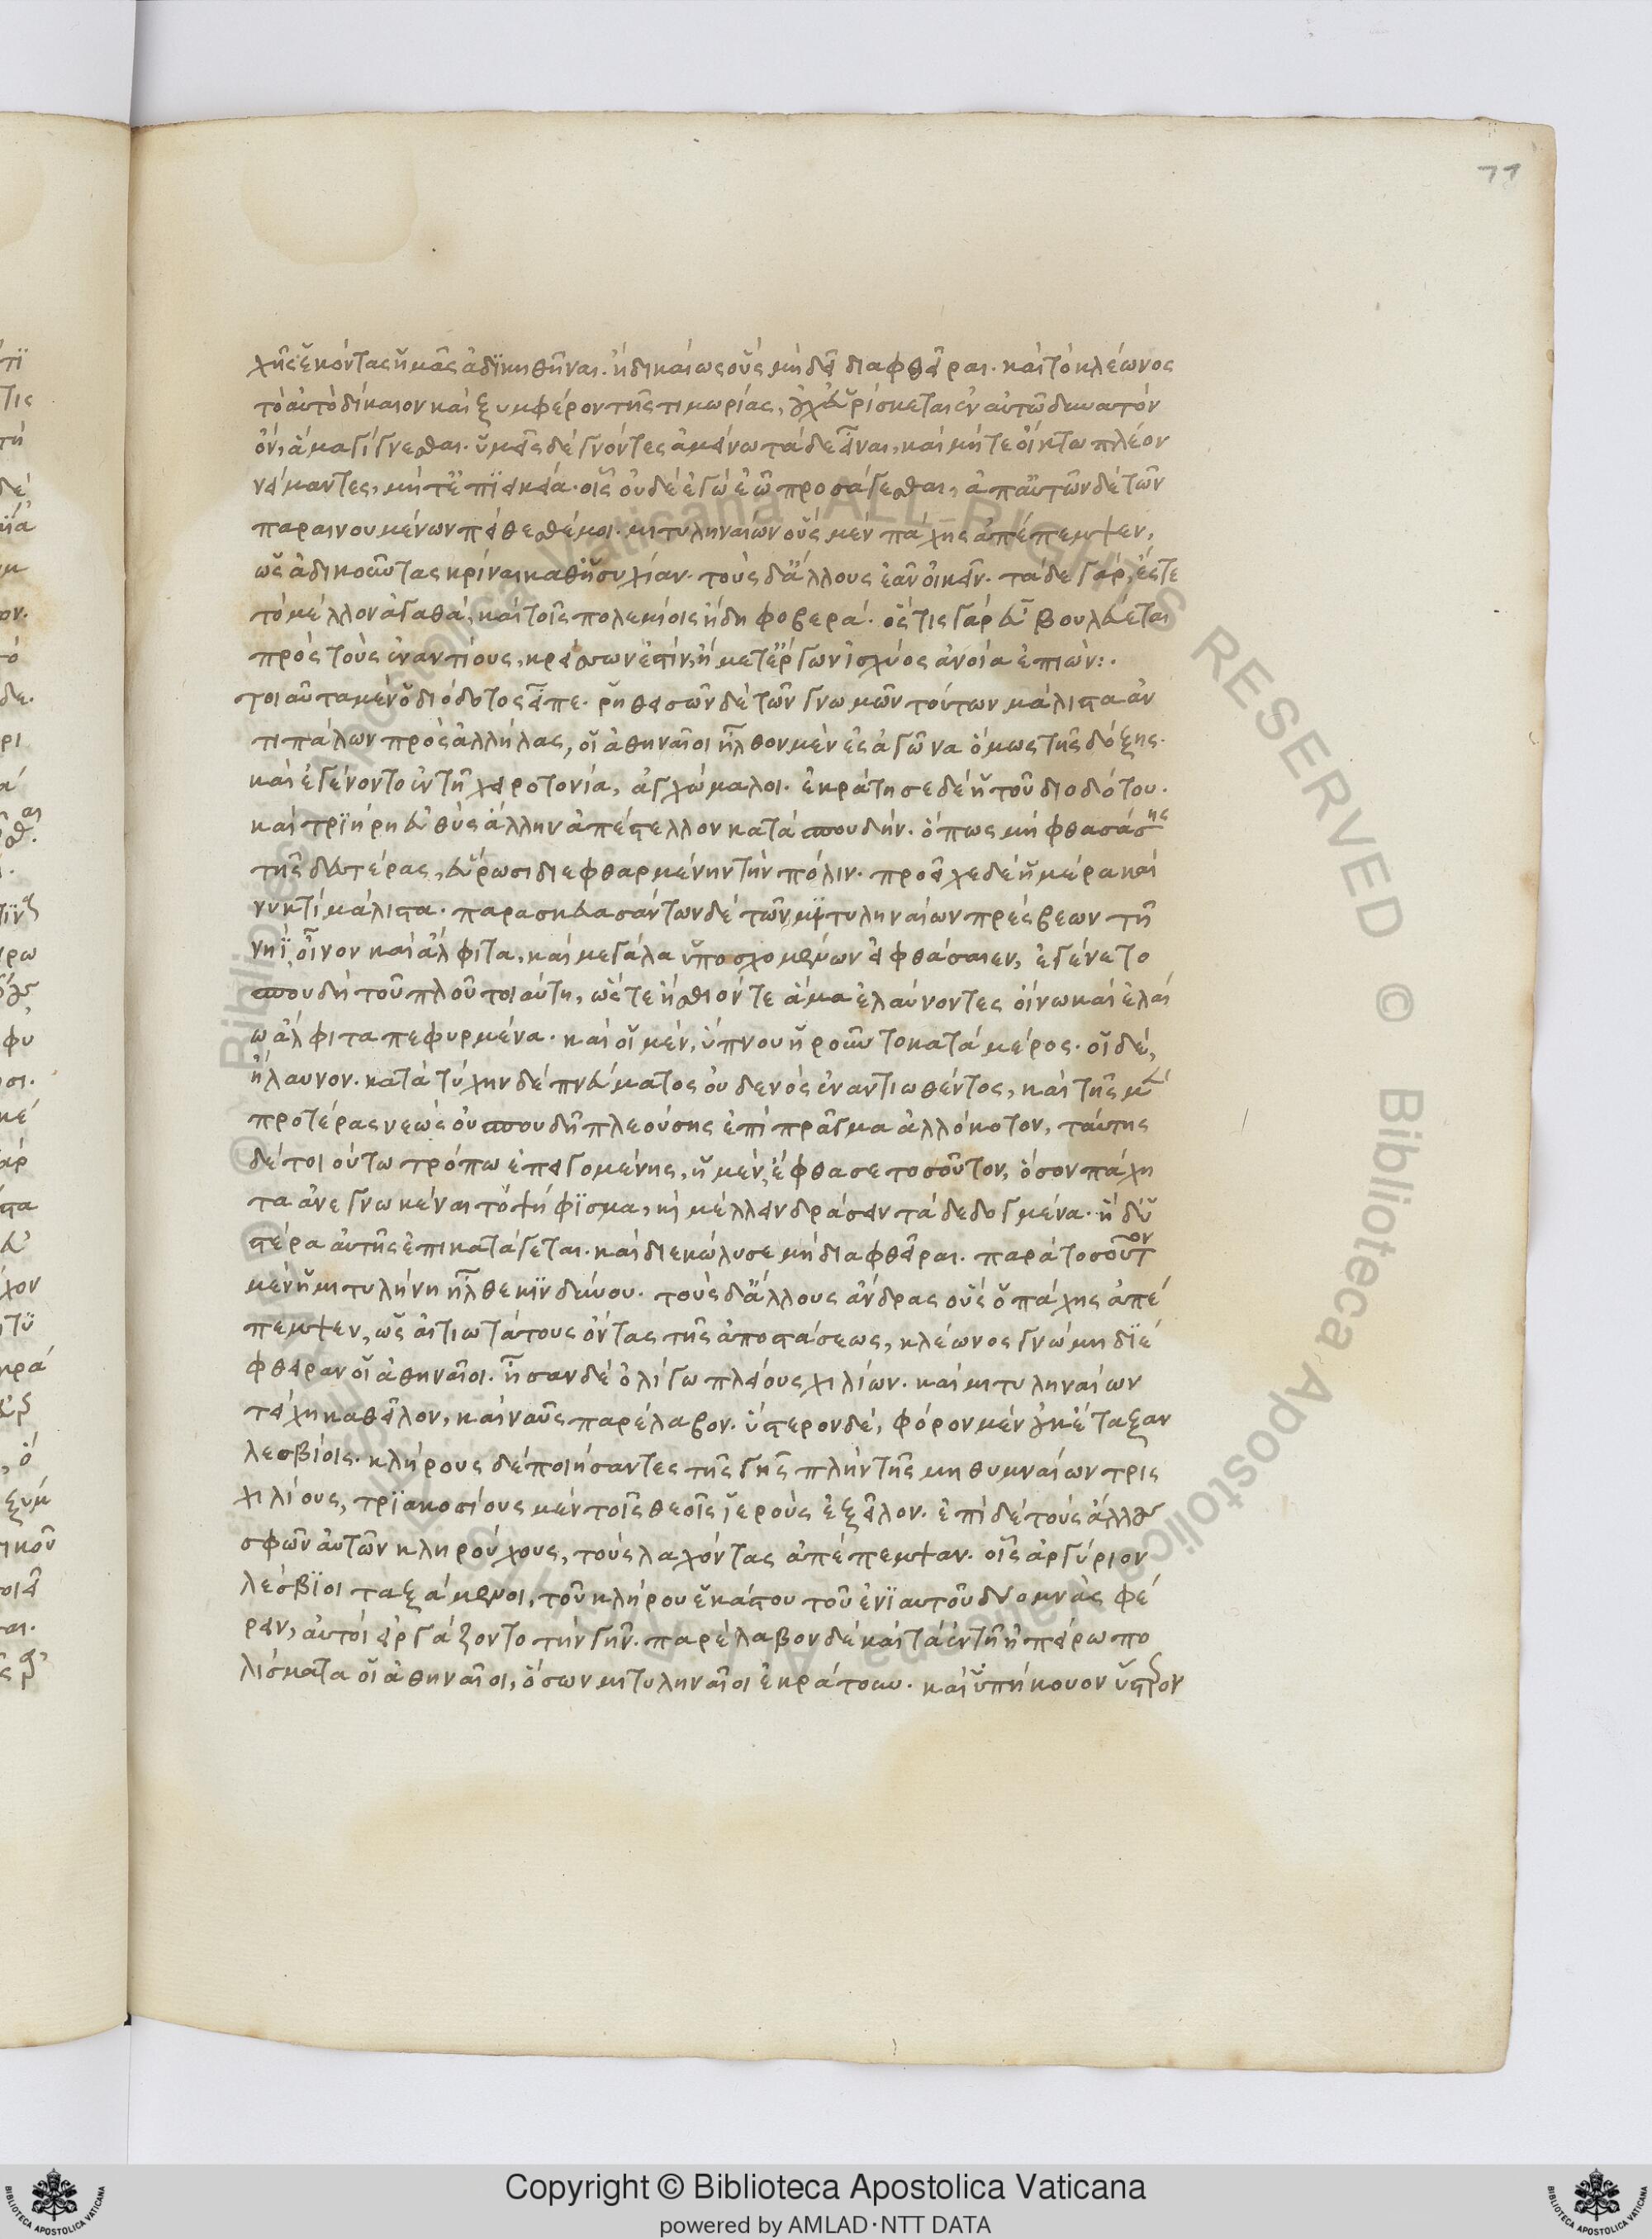 77
χῆς ἑκόντας ἡμᾶς ἀδϊκηθῆναι. ἢ δικαίως οὓς μὴ δεῖ διαφθεῖραι. καὶ τὸ κλέωνος
τὸ αὐτὸ δίκαιον καὶ ξυμφέρον τῆς τιμωρίας, οὐχ εὑρίσκεται ἐν αὐτῶ δυνατὸν
ὂν, ἅμα γίγνεσθαι. ὑμεῖς δὲ γνόντες ἀμείνω τάδε εἶναι, καὶ μήτε οἴκτω πλέον
νείμαντες, μήτ' ἐπϊεικεία. οἷς οὐδὲ ἐγὼ ἐῶ προσάγεσθαι, ἀπ' αὐτῶν δὲ τῶν
παραινουμένων πείθεσθέ μοι. μιτυληναίων οὓς μὲν πάχης ἀπέπεμψεν,
ὡς ἀδικοῦντας κρῖναι καθ' ἡσυχίαν. τοὺς δ' ἄλλους ἐᾶν οἰκεῖν. τάδε γὰρ, ἔς τε
τὸ μέλλον ἀγαθὰ, καὶ τοῖς πολεμίοις ἤδη φοβερά. ὅστις γὰρ εὖ βουλεύεται
πρὸς τοὺς ἐναντίους, κρείσσων ἐστὶν, ἢ μετ' ἔργων ἰσχύος ἀνοία ἐπιών:.
τοιαῦτα μὲν ὁ διόδοτος εἶπε. ῥηθεισῶν δὲ τῶν γνωμῶν τούτων μάλιστα ἀν
τιπάλων πρὸς ἀλλήλας, οἱ ἀθηναῖοι ἦλθον μὲν ἐς ἀγῶνα ὅμως τῆς δόξης.
καὶ ἐγένοντο ἐν τῆ χειροτονία, ἀγχώμαλοι. ἐκράτησε δὲ ἡ τοῦ διοδότου.
καὶ τρϊήρη εὐθὺς ἄλλην ἀπέστελλον κατὰ σπουδήν. ὅπως μὴ φθασάσης
τῆς δευτέρας, εὕρωσι διεφθαρμένην τὴν πόλιν. προεῖχε δὲ ἡμέρα καὶ
νυκτὶ μάλιστα. παρασκευασάντων δὲ τῶν μϊτυληναίων πρέσβεων τῆ
νηῒ, οἶνον καὶ ἄλφιτα, καὶ μεγάλα ὑποσχομένων εἰ φθάσαιεν, ἐγένετο
σπουδὴ τοῦ πλοῦ τοιαύτη, ὥστε ἤσθιόν τε ἅμα ἐλαύνοντες οἴνω καὶ ἐλαί
ω ἄλφιτα πεφυρμένα. καὶ οἱ μὲν, ὕπνου ἡροῦντο κατὰ μέρος. οἱ δὲ,
ἤλαυνον. κατὰ τύχην δὲ πνεύματος οὐδενὸς ἐναντιωθέντος, καὶ τῆς μὲν
προτέρας νεὼς οὐ σπουδῆ πλεούσης ἐπὶ πρᾶγμα ἀλλόκοτον, ταύτης
δὲ τοιούτω τρόπω ἐπειγομένης, ἡ μὲν, ἔφθασε τοσοῦτον, ὅσον πάχη
τα ἀνεγνωκέναι τὸ ψήφϊσμα, καὶ μέλλειν δράσειν τὰ δεδογμένα. ἡ δ' ὑ
στέρα αὐτῆς ἐπικατάγεται. καὶ διεκώλυσε μὴ διαφθεῖραι. παρὰ τοσοῦτον
μὲν ἡ μιτυλήνη ἦλθε κϊνδύνου. τοὺς δ' ἄλλους ἄνδρας οὓς ὁ πάχης ἀπέ
πεμψεν, ὡς αἰτιωτάτους ὄντας τῆς ἀποστάσεως, κλέωνος γνώμη δϊέ
φθειραν οἱ ἀθηναῖοι. ἦσαν δὲ ὀλίγω πλείους χιλίων. καὶ μιτυληναίων
τείχη καθεῖλον, καὶ ναῦς παρέλαβον. ὕστερον δὲ, φόρον μὲν οὐκ ἔταξαν
λεσβίοις. κλήρους δὲ ποιήσαντες τῆς γῆς πλὴν τῆς μηθυμναίων τρις
χιλίους, τρϊακοσίους μὲν τοῖς θεοῖς ἱεροὺς ἐξεῖλον. ἐπὶ δὲ τοὺς ἄλλους
σφῶν αὐτῶν κληρούχους, τοὺς λαχόντας ἀπέπεμψαν. οἷς ἀργύριον
λέσβϊοι ταξάμενοι, τοῦ κλήρου ἑκάστου τοῦ ἐνϊαυτοῦ δύο μνὰς φέ
ρειν, αὐτοὶ εἰργάζοντο τὴν γῆν. παρέλαβον δὲ καὶ τὰ ἐν τῆ ἠπείρω πο
λίσματα οἱ ἀθηναῖοι, ὅσων μιτυληναῖοι ἐκράτουν. καὶ ὑπήκουον ὕστερον
Copyright © Biblioteca Apostolica Vaticana
powered by AMLAD·NTT DATA